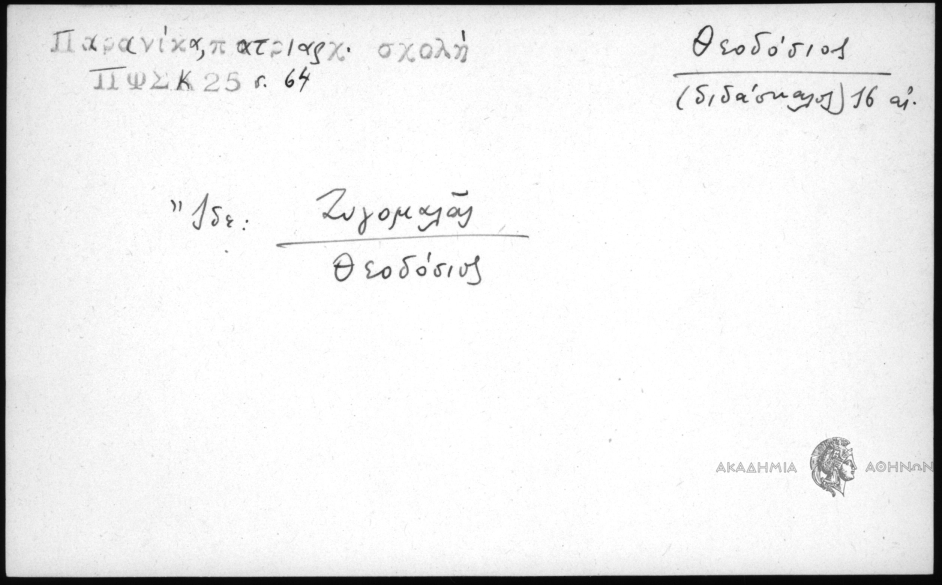 Παρανίκα, πατριαρχ. σχολή
ΠΨΣΚ 25 σ. 64
Θεοδόσιος
(διδάσκαλος) 16 αἰ.
Ἴδε:
Ζυγομαλᾶς
Θεοδόσιος
ΑΚΑΔΗΜΙΑ ΑΘΗΝΩΝ